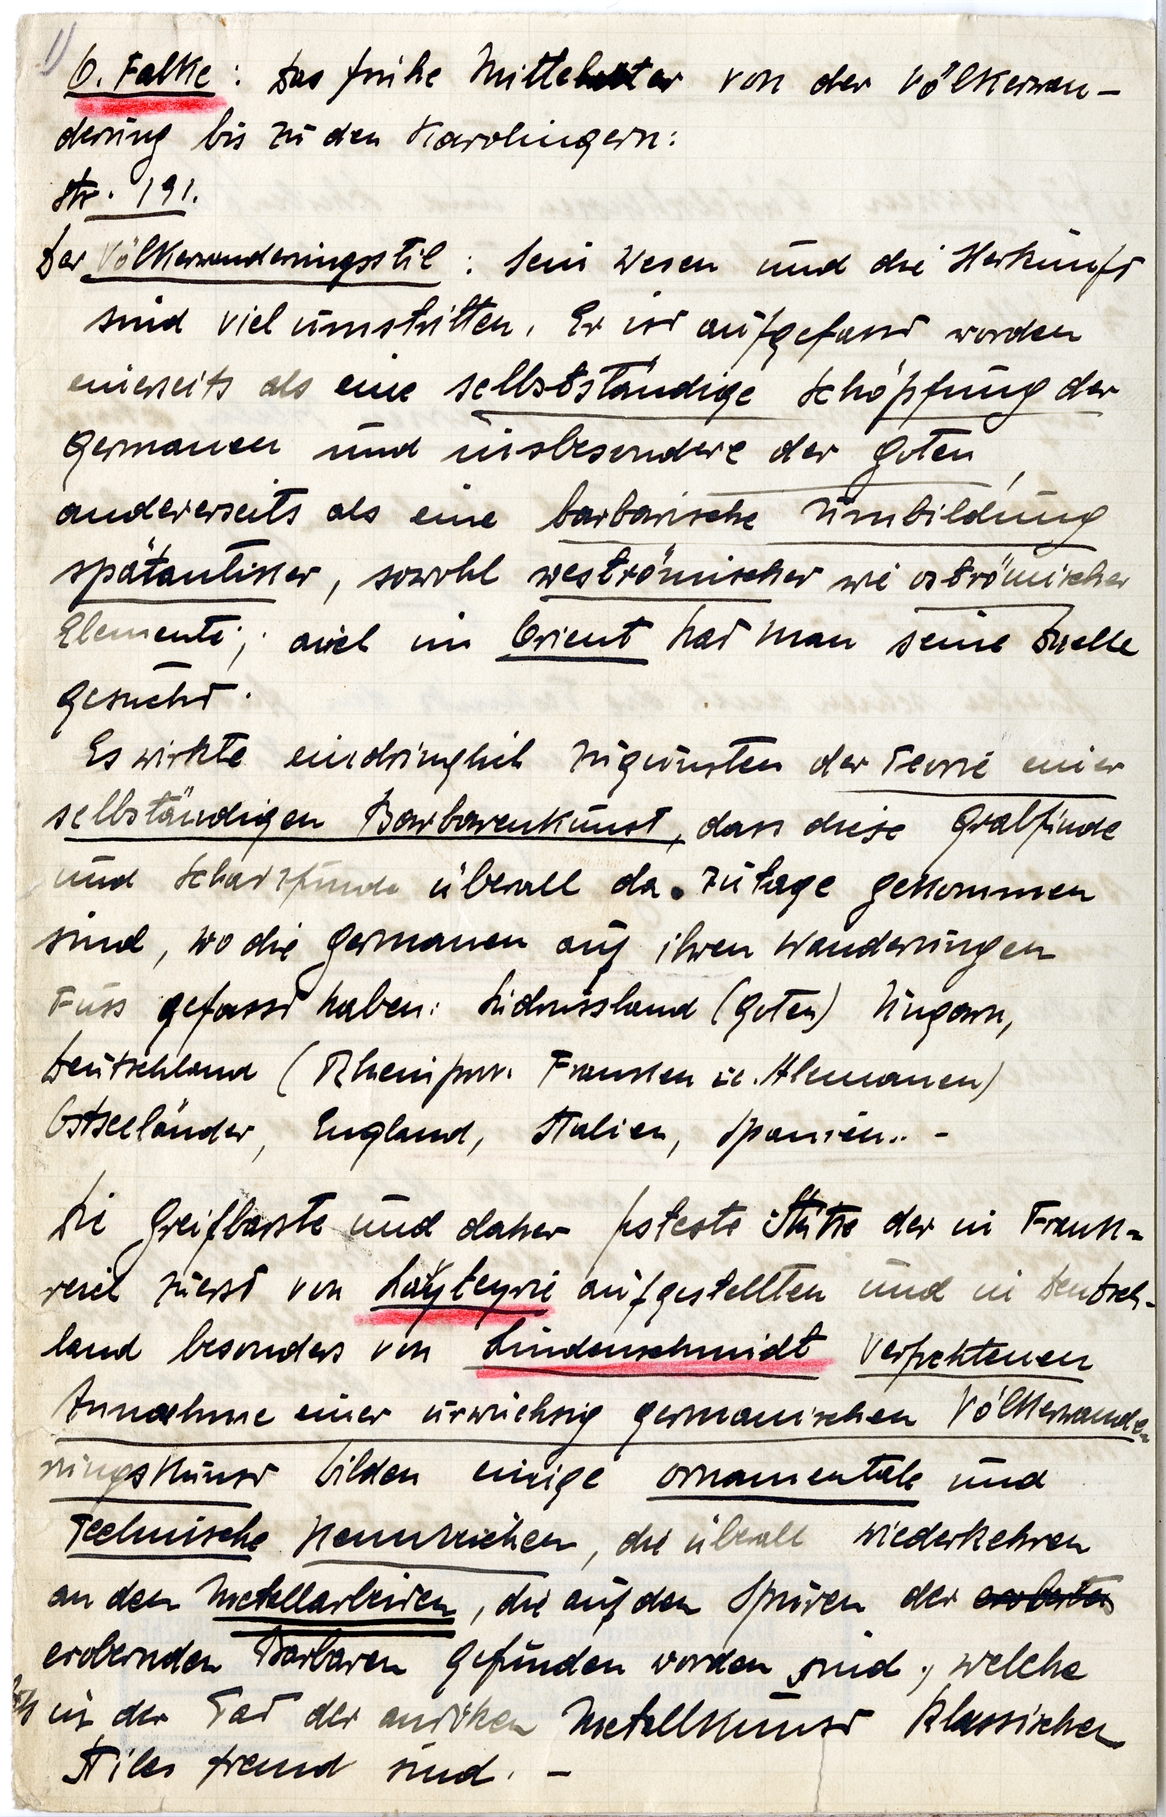 1)
O. Falke: Das frühe Mittelalter von der Völkerwan-
derung bis zu den Karolingern:
Str. 191.
Der Völkerwanderungsstil: Sein Wesen und die Herkunft
sind viel umstritten. Er ist aufgefasst worden
einerseits als eine selbstständige Schöpfung der
Germanen und insbesondere der Goten,
andererseits als eine barbarische Umbildung
spätantiker, sowohl weströmischer wie oströmischer
Elemente; auch im Orient hat man seine Quelle
gesucht.
Es wirkte eindringlich zugunsten der Teorie einer
selbständigen Barbarenkunst, dass diese Grabfunde
und Schatzfunde überall da zutage gekommen
sind, wo die Germanen auf ihren Wanderungen
Fuss gefasst haben: Südrussland (Goten) Ungarn,
Deutschland (Rheinprov. Franken u. Alemanen)
Ostseeländer, England, Italien, Spanien.. -
Die Greifbarste und daher festeste Stütze der in Frank-
reich zuerst von Lasteyrie aufgestellten und in Deutsch-
land besonders von Lindenschmidt verfochtenen
Annahme einer urwüchsig germanischen Völkerwande-
rungskunst bilden einige ornamentale und
Technische Kennzeichen, die überall wiederkehren
an den Metallarbeiten, die auf den Spuren der
erobernden Barbaren gefunden worden sind, welche
in der Tat der antiken Metallkunst klassischen
Stiles fremd sind. -